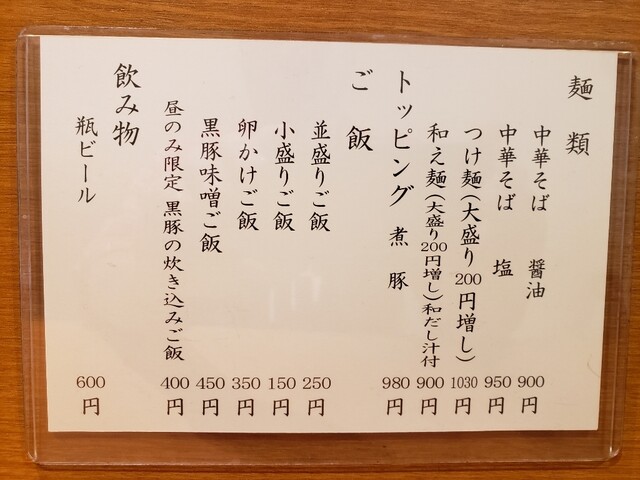 麺類
中華そば 醤油 900円
中華そば 塩 950円
つけ麺(大盛り200円増し) 1030円
和え麺(大盛り200円増し)和だし汁付 900円
トッピング 煮豚 980円
ご飯
並盛りご飯 250円
小盛りご飯 150円
卵かけご飯 350円
黒豚味噌ご飯 450円
昼のみ限定 黒豚の炊き込みご飯 400円
飲み物
瓶ビール 600円